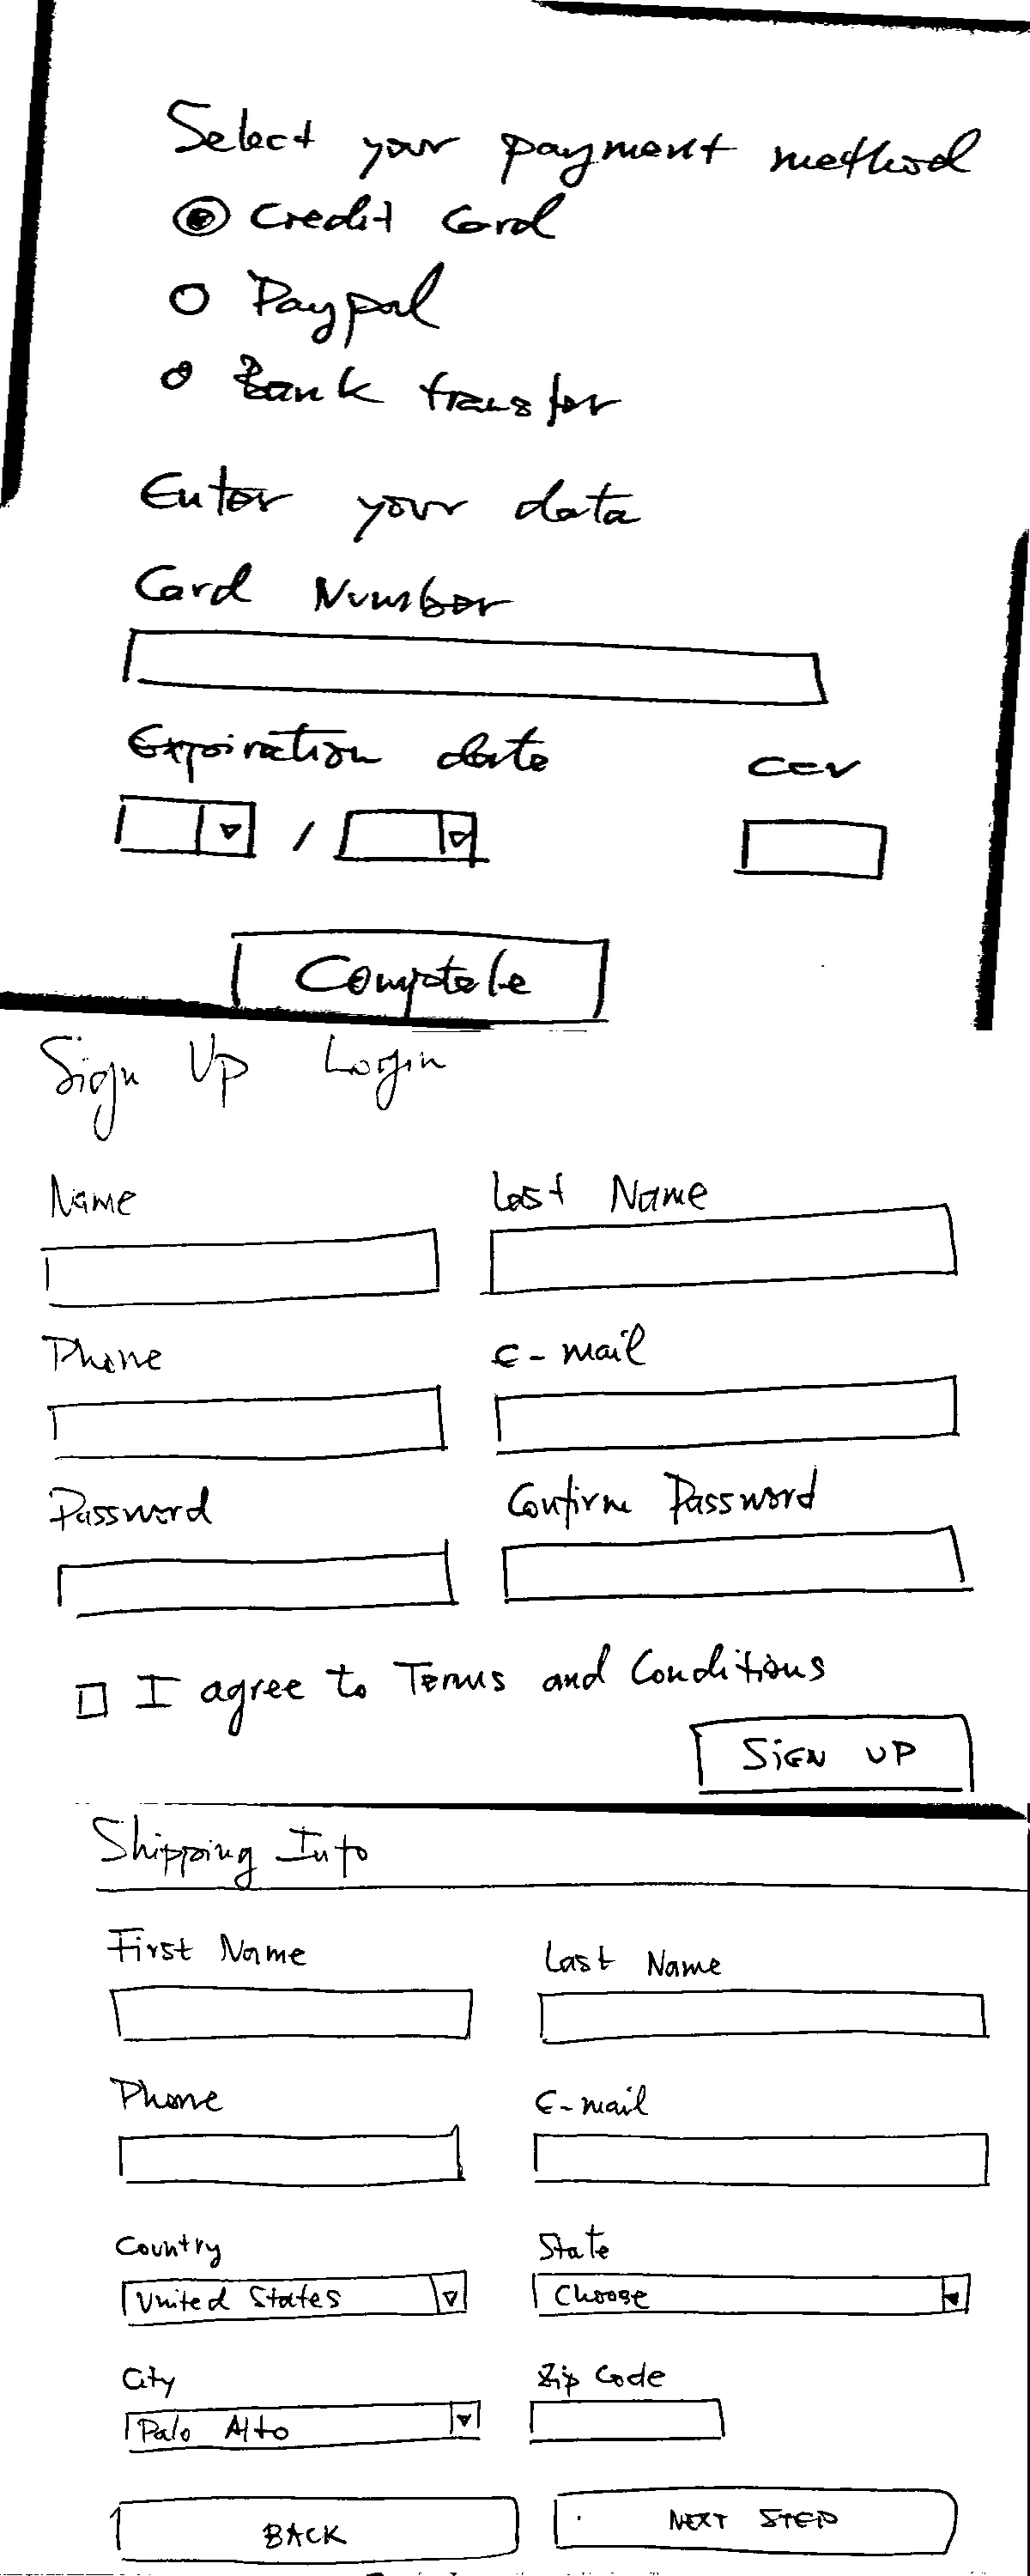 Select your payment method
Credit Card
Paypal
Bank transfer
Enter your data
Card Number
Expiration date CCV
/
Complete
Sign Up Login
Name Last Name
Phone E-mail
Password Confirm Password
I agree to Terms and Conditions
SIGN UP
Shipping Info
First Name Last Name
Phone E-mail
Country State
United States Choose
City Zip Code
Palo Alto
BACK NEXT STEP